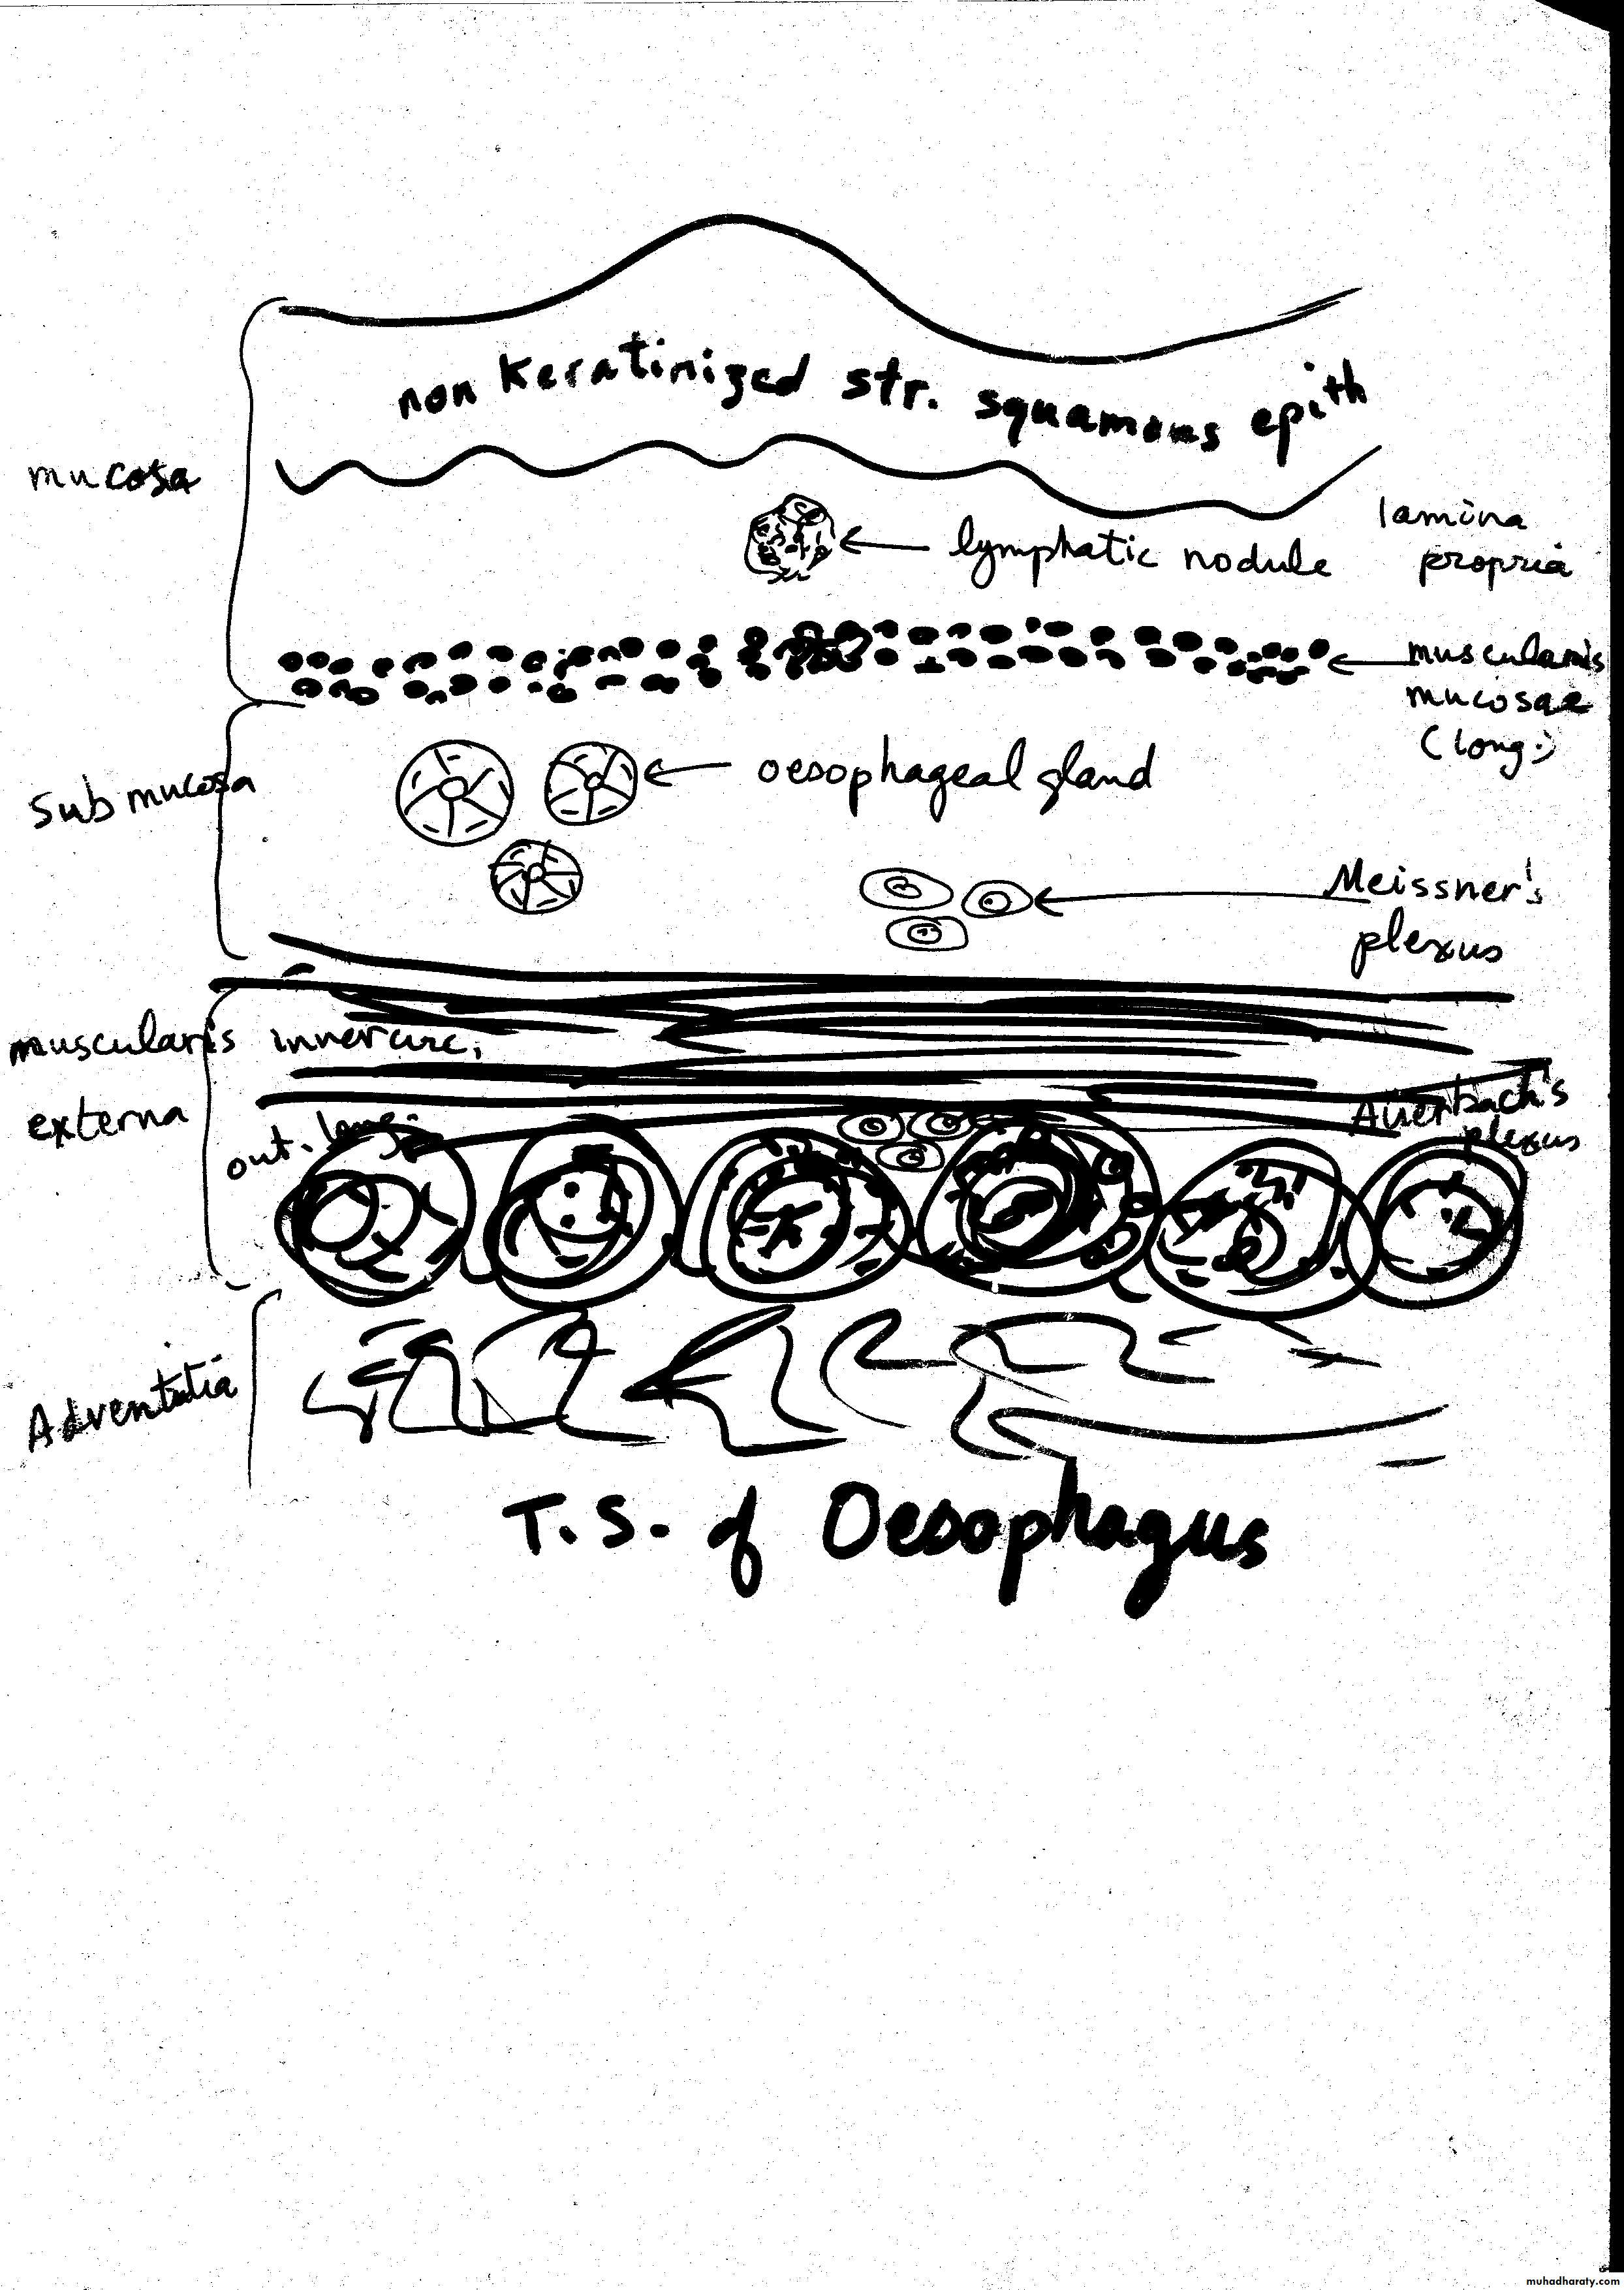 non Keratinized str. squamous epith
mucosa
lamina
propria
lymphatic nodule
muscularis
mucosae
(long.)
Sub mucosa
oesophageal gland
Meissner's
plexus
muscularis
externa
inner circ.
out. long.
Auerbach's
plexus
Adventitia
T.S. of Oesophagus
muhadharaty.com